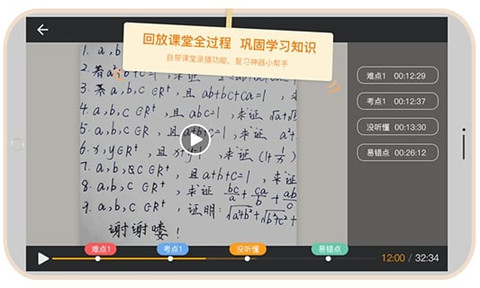 回放课堂全过程 巩固学习知识
自带课堂录播功能，复习神器小帮手
1. a,b
2. 若a
3. 若a,b,c∈R⁺, 且 ab+bc+ca=1
4. a,b,c∈R⁺, 且 abc=1, 求证
5. a,b,c∈R, 且 a+b+c=1, 求证 a²+
6. x,y∈R⁺, 且 x+y=1, 求证 (1+1/x)
7. a,b,c∈R⁺, 且 a+b+c=1, 求证
8. a,b,c∈R⁺, 求证 bc/a+ca/b+ab/c
9. a,b,c∈R⁺, 证明: √a²+b²+√b²+c²+
谢谢喽!
难点1 00:12:29
考点1 00:12:37
没听懂 00:13:30
易错点 00:26:12
难点1
考点1
没听懂
易错点
12:00 / 32:34